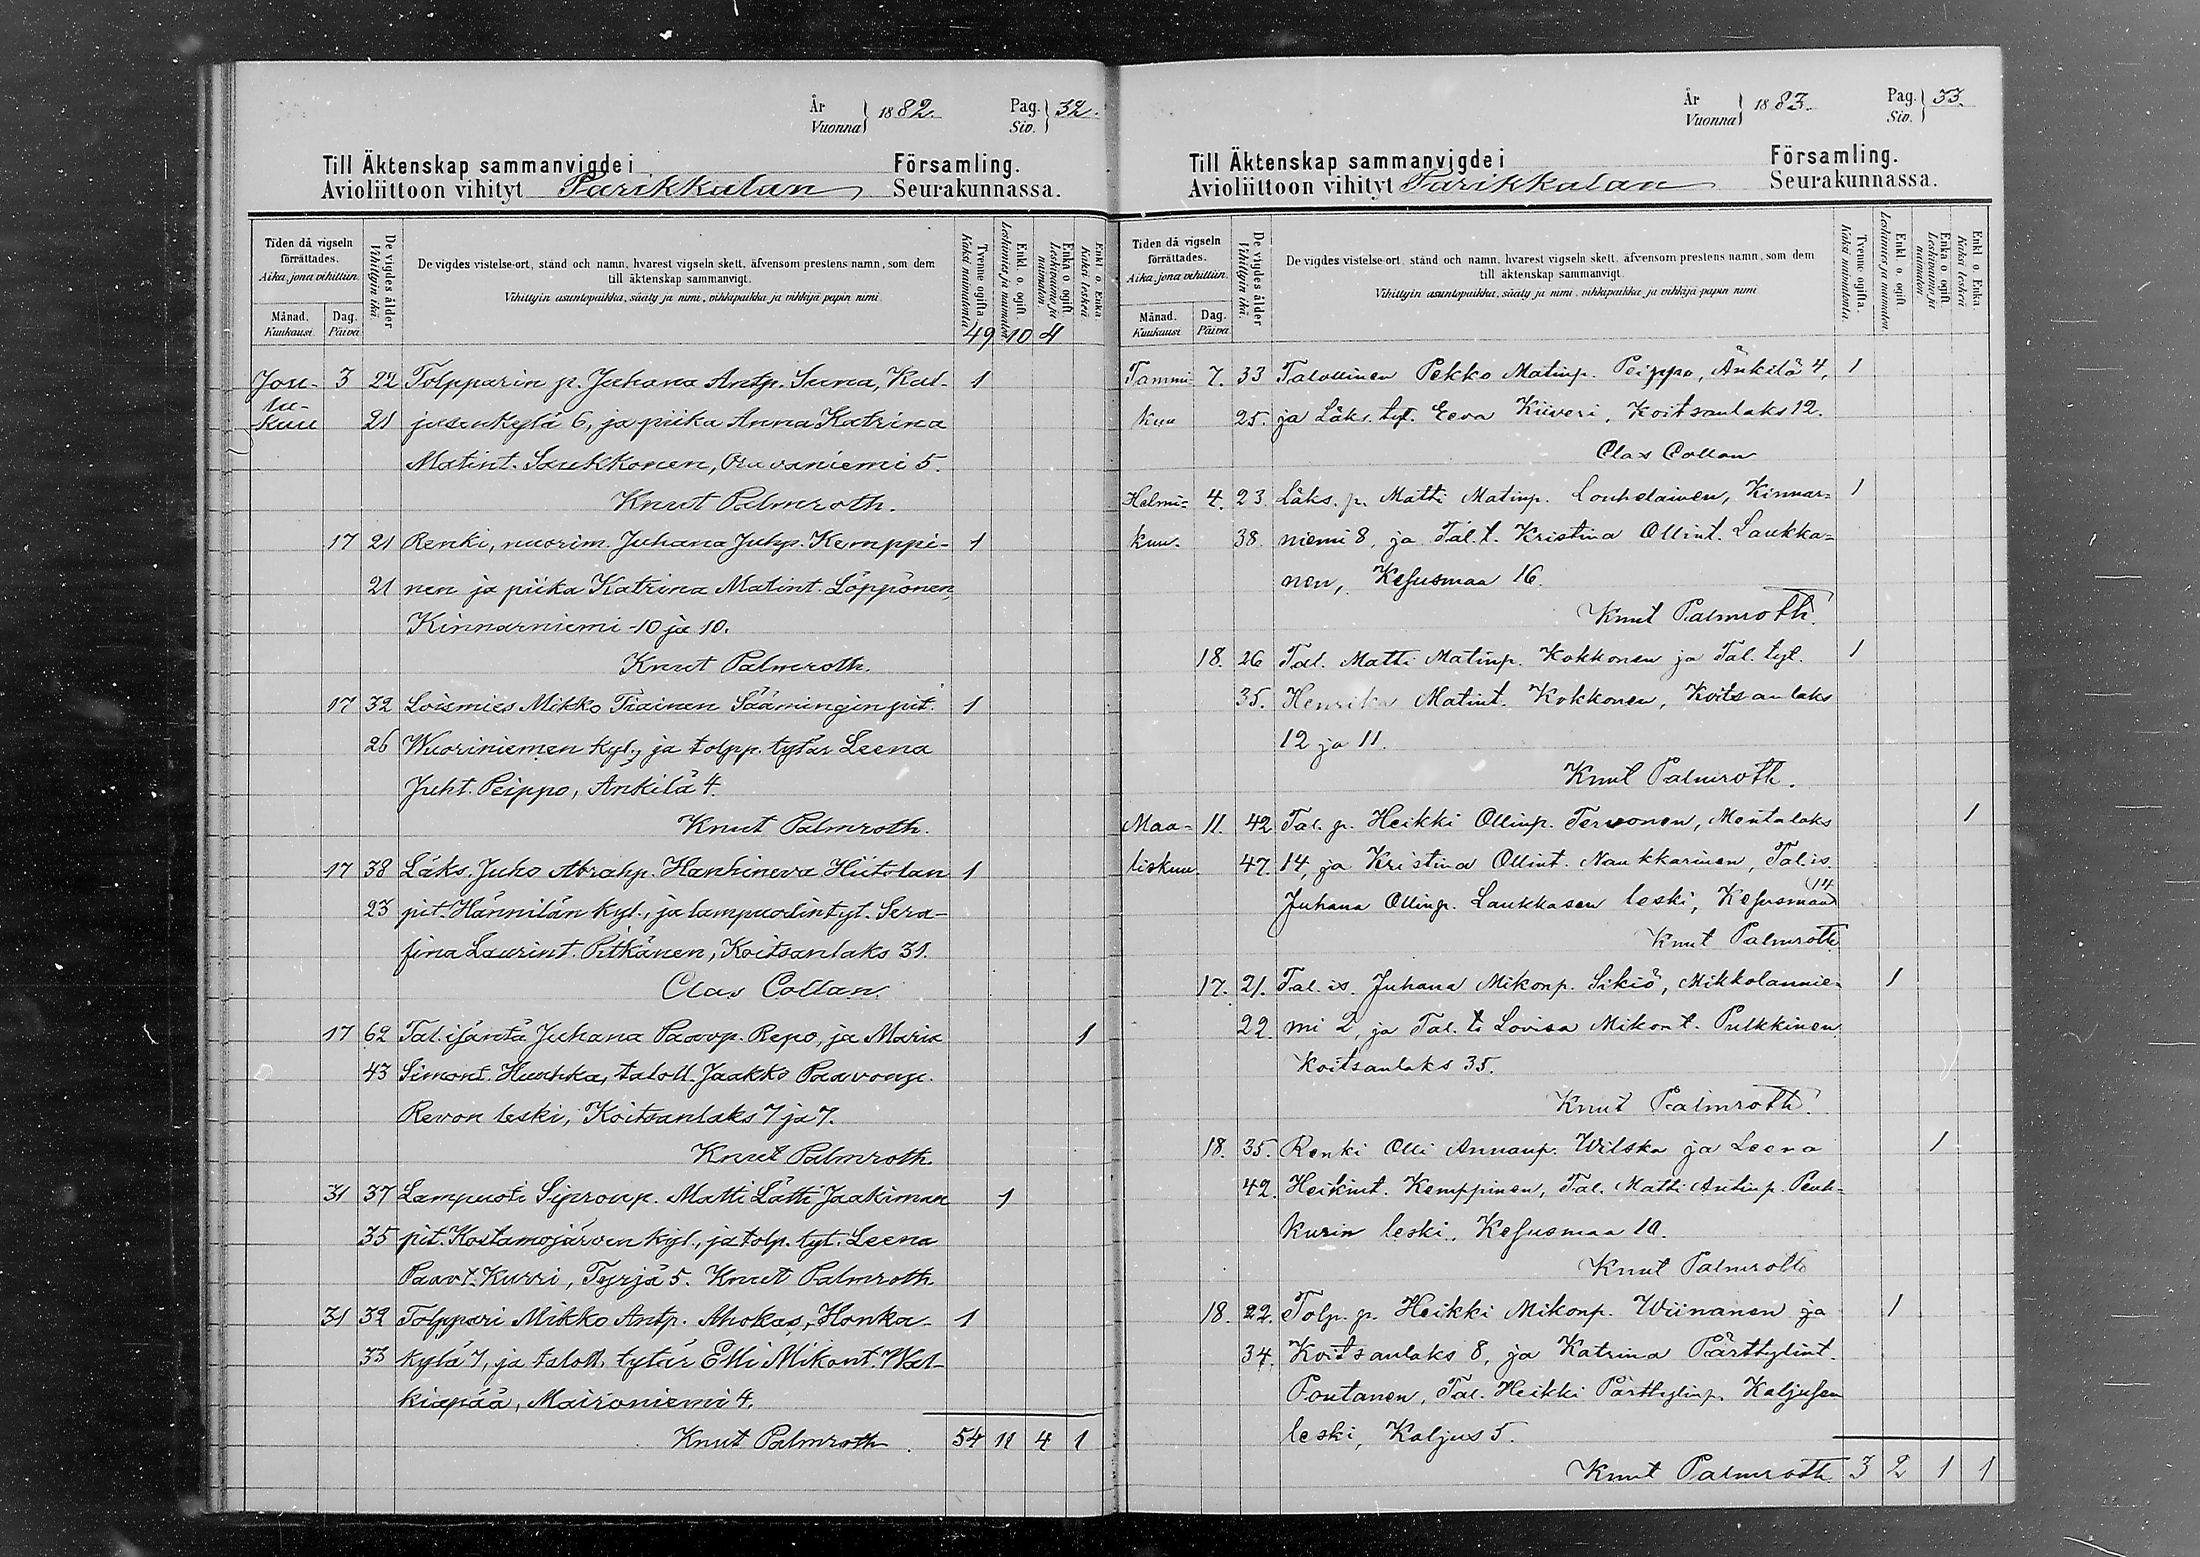 År
Vuonna 1882. Pag.
Siv. 32.
Till Äktenskap sammanvigde i Församling.
Avioliittoon vihityt Parikkalan Seurakunnassa.
Tiden då vigseln förrättades.
Aika, jona vihittiin.
Månad.
Kuukausi.
Dag.
Päivä
De vigdes ålder
Vihittyin ikä.
De vigdes vistelse-ort, stånd och namn, hvarest vigseln skett, äfvensom prestens namn, som dem
till äktenskap sammanvigt.
Vihittyin asuntopaikka, sääty ja nimi, vihkipaikka ja vihkijä papin nimi.
Tvenne ogifta.
Kaksi naimatonta.
Enkl. o. ogift.
Leskimies ja naimaton.
Enka o ogift.
Leskivaimo ja naimaton.
Enkl o. Enka.
Kaksi leskeä
49 10 4
Jou- 3 22 Tolpparin p. Juhana Antp. Suna, Kal- 1
lu-
kuu 21 jusenkylä 6, ja piika Anna Katrina
Matint. Saukkonen, Oravaniemi 5.
Knut Palmroth.
17 21 Renki, nuorim. Juhana Juhp. Kemppi- 1
21 nen ja piika Katrina Matint. Löppönen,
Kinnarniemi 10 ja 10.
Knut Palmroth.
17 32 Loismies Mikko Tiainen Säämingin pit. 1
26 Wuoriniemen kyl., ja tolpp. tytär Leena
Juht. Peippo, Ankilä 4.
Knut Palmroth.
17 38 Läks. Juho Abrahp. Hanhineva Hiitolan 1
23 pit. Hännilän kyl., ja lampuodin tyt. Sera-
fina Laurint. Pitkänen, Koitsanlaks 31.
Clas Collan.
17 62 Tal. isäntä Juhana Paavp. Repo, ja Maria 1
43 Simont. Huuhka, taloll. Jaakko Paavonp.
Revon leski, Koitsanlaks 7 ja 7.
Knut Palmroth.
31 37 Lampuoti Siproup. Matti Lätti Jaakiman 1
35 pit. Kostamojärven kyl., ja tolp. tyt. Leena
Paavt. Kurri, Tyrjä 5. Knut Palmroth
31 32 Tolppari Mikko Antp. Ahokas, Honka- 1
33 kylä 7, ja taloll. tytär Elli Mikont. Wal-
kiapää, Maironiemi 4.
Knut Palmroth. 54 11 4 1
År
Vuonna 1883. Pag.
Siv. 33.
Till Äktenskap sammanvigde i Församling.
Avioliittoon vihityt Parikkalan Seurakunnassa.
Tiden då vigseln förrättades.
Aika, jona vihittiin.
Månad.
Kuukausi
Dag.
Päivä
De vigdes ålder
Vihittyin ikä.
De vigdes vistelse-ort, stånd och namn, hvarest vigseln skett, äfvensom prestens namn, som dem
till äktenskap sammanvigt.
Vihittyin asuntopaikka, sääty ja nimi, vihkipaikka ja vihkijä papin nimi
Tvenne ogifta.
Kaksi naimatonta.
Enkl. o. ogift.
Leskimies ja naimaton.
Enka o ogift.
Leskivaimo ja naimaton.
Enkl o. Enka.
Kaksi leskeä
Tammi- 7. 33 Talollinen Pekko Matinp. Peippo, Änkilä 4, 1
kuu 25. ja Läks. tyt. Eeva Kiiveri, Koitsanlaks 12.
Clas Collan
Helmi- 4. 23. Läks. p. Matti Matinp. Louhelainen, Kinnar- 1
kuu. 38. niemi 8, ja Tal. t. Kristina Ollint. Laukka-
nen, Kesusmaa 16.
Knut Palmroth.
18. 26 Tal. Matti Matinp. Kokkonen ja Tal. tyt. 1
35. Henrika Matint. Kokkonen, Koitsanlaks
12 ja 11.
Knut Palmroth.
Maa- 11. 42 Tal. p. Heikki Ollinp. Tervonen, Mentalaks 1
liskuu. 47. 14, ja Kristina Ollint. Naukkarinen, Tal. is.
Juhana Ollinp. Laukkasen leski, Kesusmaa 14
Knut Palmroth.
17. 21. Tal. is. Juhana Mikonp. Sikiö, Mikkolannie- 1
22. mi 2, ja Tal. t. Lovisa Mikont. Pulkkinen
Koitsanlaks 35.
Knut Palmroth.
18. 35. Renki Olli Annanp. Wilska ja Leena 1
42. Heikint. Kemppinen, Tal. Matti Antinp. Peuh-
kurin leski, Kesusmaa 10.
Knut Palmroth
18. 22. Tolp. p. Heikki Mikonp. Wiinanen ja 1
34. Koitsanlaks 8, ja Katrina Pärttylint.
Pontanen, Tal. Heikki Pärttylinp. Kaljusen
leski, Kaljus 5.
Knut Palmroth 3 2 1 1